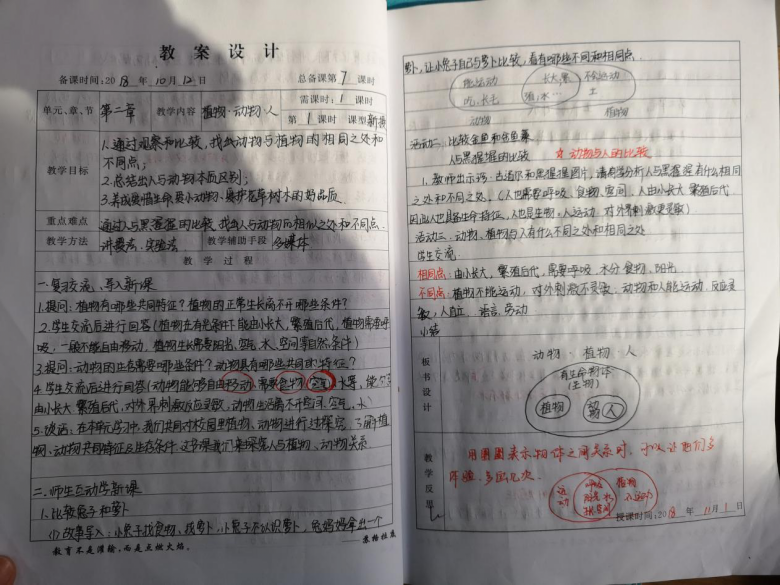 教案设计
备课时间:2018年10月12日 总备课第7课时
单元、章、节 第二章 教学内容 植物·动物·人 需课时:1课时
第1课时 课型 新授
教学目标
1.通过观察和比较,找出动物与植物的相同之处和
不同点;
2.总结出人与动物本质区别;
3.养成爱惜生命爱小动物、爱护花草树木的好品质.
重点难点 通过人与黑猩猩的比较,找出人与动物的相似之处和不同点.
教学方法 讲授法.实验法 教学辅助手段 多媒体
教学过程
一.复习交流,导入新课
1.提问:植物有哪些共同特征?植物的正常生长离不开哪些条件?
2.学生交流后进行回答(植物在有总条件下能由小长大,繁殖后代,植物需要呼
吸,一般不能自由移动,植物生长需要阳光、空气、水、空间等自然条件)
3.提问:动物的生存需要哪些条件?动物具有哪些共同的特征?
4.学生交流后进行回答(动物能够自由移动,需要食物、空气、水等,能
由小长大,繁殖后代,对外界刺激反应灵敏,动物生活离不开空间,空气,水)
5.谈话:在本单元学习中,我们共同对校园里植物、动物进行过探究,了解植
物、动物共同特征及生存条件.这节课我们来探究人与植物、动物关系
二.师生互动学新课
1.比较兔子和萝卜
(1)故事导入:小兔子找食物,找萝卜,小兔子不认识萝卜,兔妈妈拿出一个
教育不是灌输,而是点燃火焰。 ——苏格拉底
萝卜,让小兔子自己与萝卜比较,看有哪些不同和相同点.
能运动 长大,累 不会运动
吃,长毛 殖,水… 土
动物 植物
活动二:比较金鱼和金鱼藻
人与黑猩猩的比较 ☆动物与人的比较
1.教师出示:古道尔和黑猩猩图片,请同学分析人与黑猩猩有什么相同
之处和不同之处.(人也需要呼吸、食物、空间,人由小长大,繁殖后代,
因此人也具备生命特征,人也是生物.人运动、对外界刺激更灵敏)
活动三:动物、植物与人有什么不同之处和相同之处
学生交流:
相同点:由小长大,繁殖后代,需要呼吸、水分、食物、阳光
不同点:植物不能运动,对外刺激不灵敏,动物和人能运动,反应灵
敏,人直立、语言、劳动
小结
板书设计
动物·植物 人
有生命物体
(生物)
植物 动物 人
教学反思
用圈圈表示物体之间关系时,可以让他们多
体验,多画几次.
运动 植物
不运动
授课时间:2018年11月1日